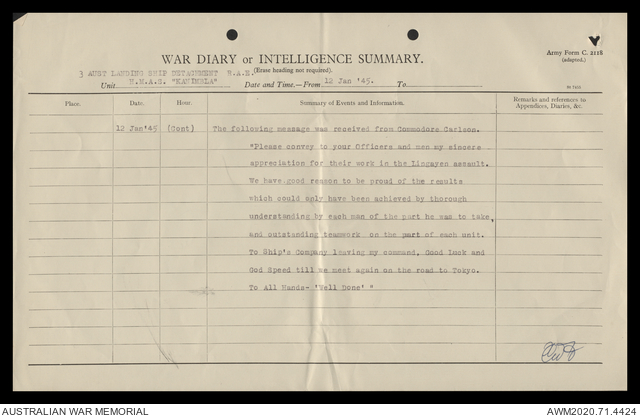 Army Form C. 2118
(adapted.)
WAR DIARY or INTELLIGENCE SUMMARY.
(Erase heading not required).
3 AUST LANDING SHIP DETACHMENT R.A.E.
Unit H.M.A.S. "KANIMBLA" Date and Time.—From 12 Jan '45. To
Place. Date. Hour. Summary of Events and Information. Remarks and references to
Appendices, Diaries, &c.
12 Jan'45 (Cont) The following message was received from Commodore Carlson.
"Please convey to your Officers and men my sincere
appreciation for their work in the Lingayen assault.
We have good reason to be proud of the results
which could only have been achieved by thorough
understanding by each man of the part he was to take,
and outstanding teamwork on the part of each unit.
To Ship's Company leaving my command, Good Luck and
God Speed till we meet again on the road to Tokyo.
To All Hands- 'Well Done' "
AUSTRALIAN WAR MEMORIAL
AWM2020.71.4424